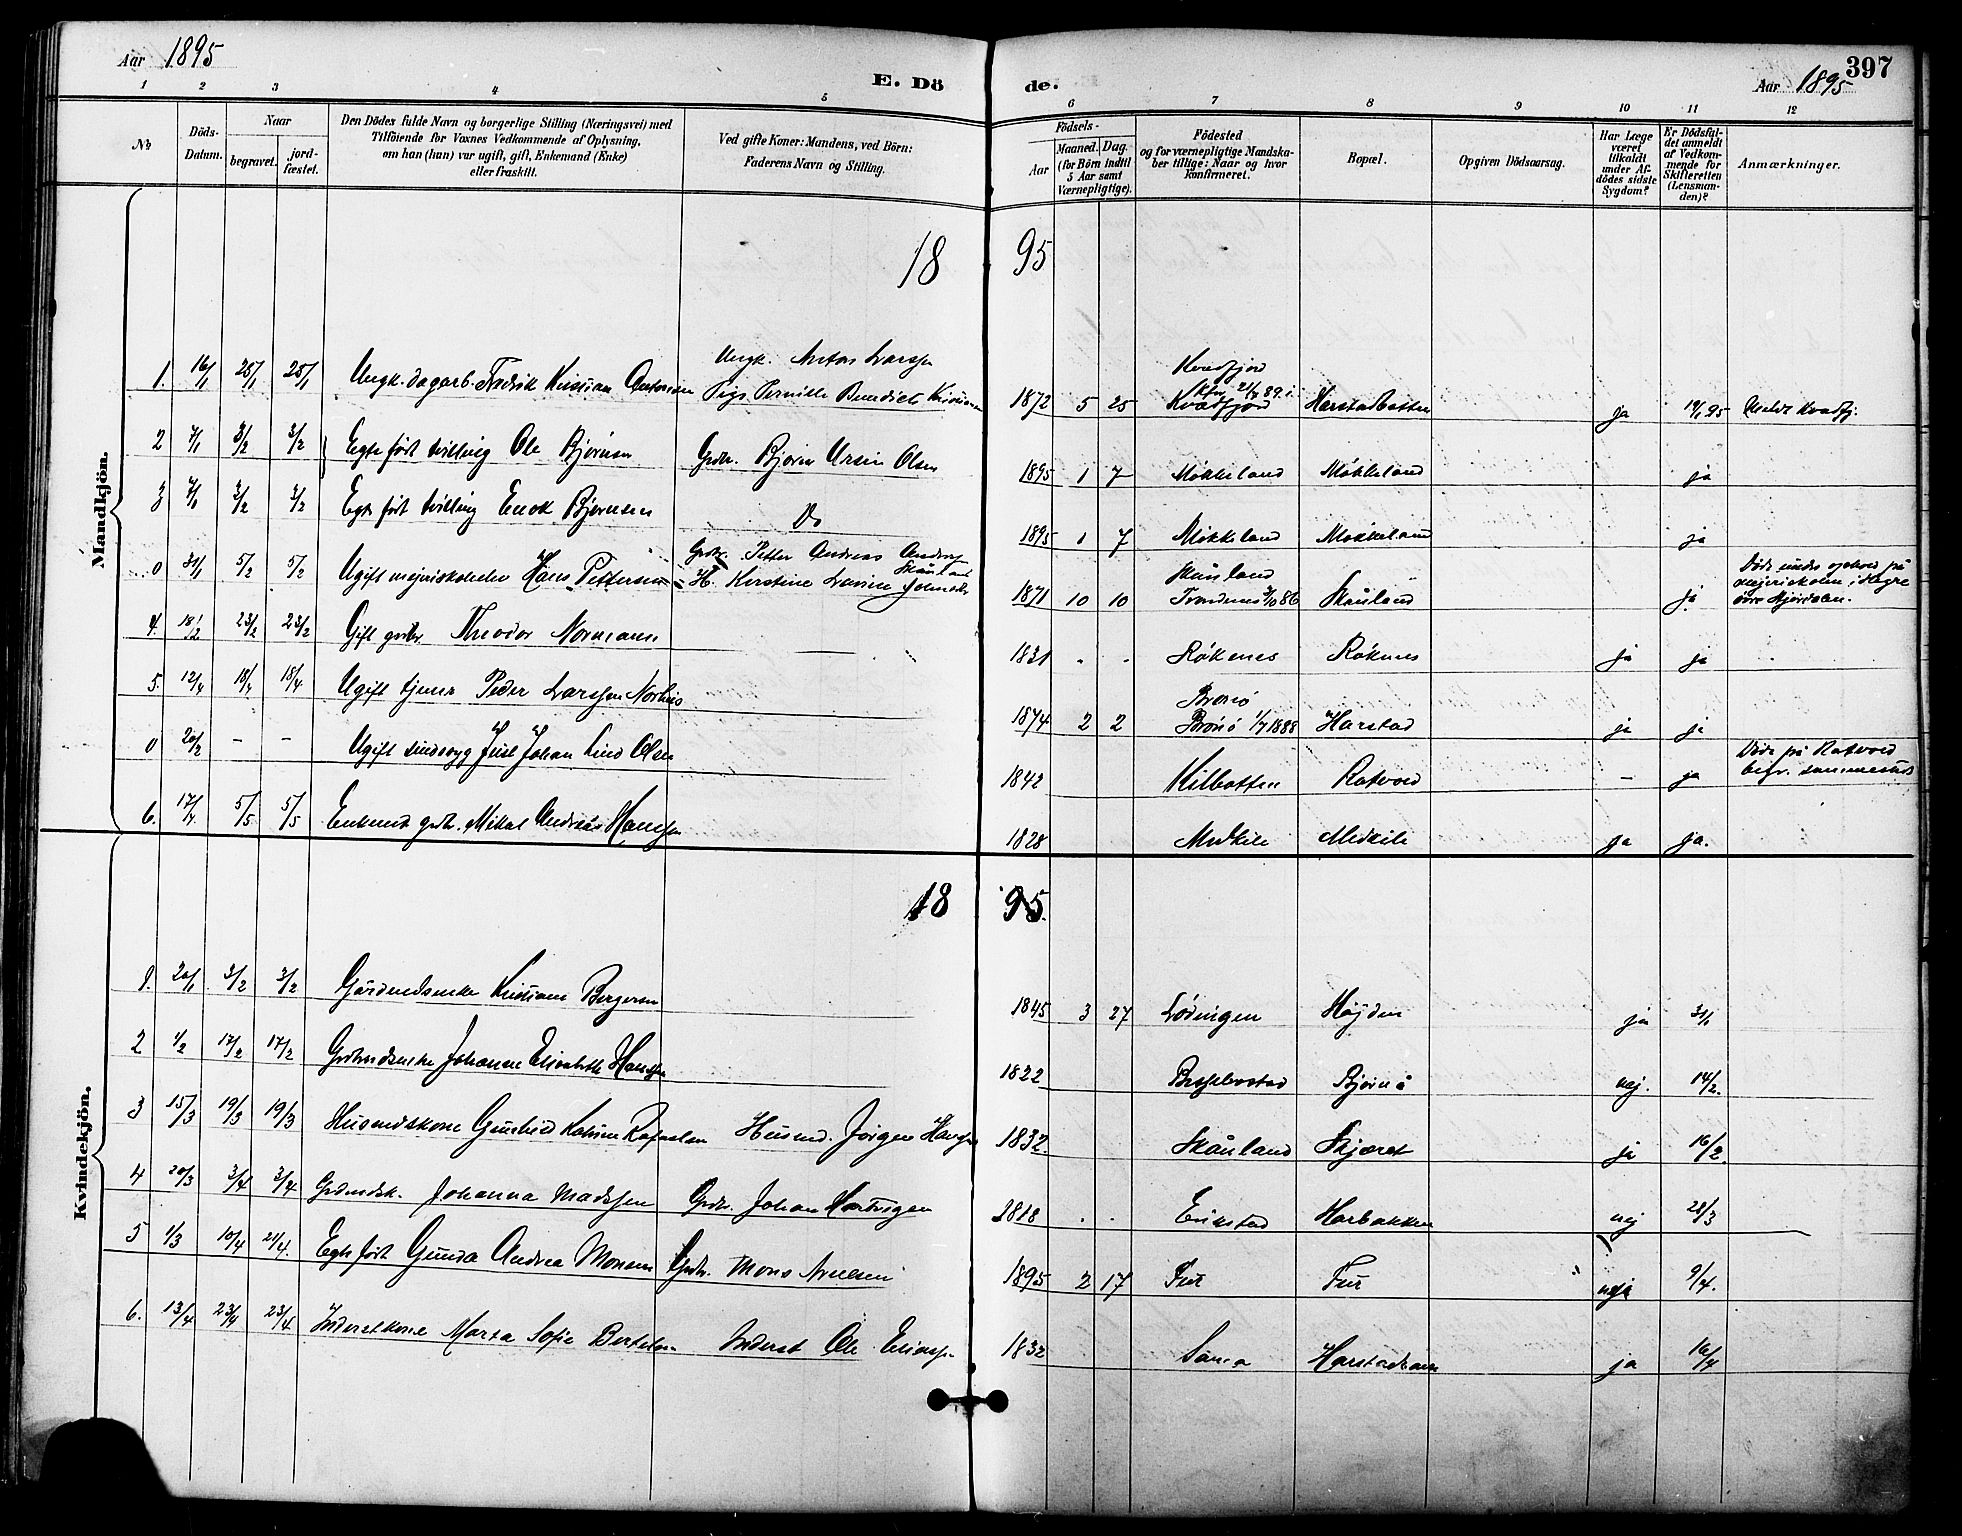 Aar 1895
E. Dö
de.
Aar 1895
397
1 2 3 4 5 6 7 8 9 10 11 12
№
Döds-
Datum.
Naar
begravet.
jord-
fæstet.
Den Dödes fulde Navn og borgerlige Stilling (Næringsvei) med
Tilföiende for Voxnes Vedkommende af Oplysning,
om han (hun) var ugift, gift, Enkemand (Enke)
eller fraskilt.
Ved gifte Koner: Mandens, ved Börn:
Faderens Navn og Stilling.
Födsels-
Aar
Maaned. Dag.
(for Börn indtil
5 Aar samt
Værnepligtige).
Födested
og for værnepligtige Mandska-
ber tillige: Naar og hvor
konfirmeret.
Bopæl.
Opgiven Dödsaarsag.
Har Læge
været
tilkaldt
under Af-
dödes sidste
Sygdom?
Er Dödsfal-
det anmeldt
af Vedkom-
mende for
Skifteretten
(Lensman-
den)?
Anmærkninger.
Mandkjön.
18 95
Ungk. Anton Larssen
Kvædfjord
1. 16/1 25/1 25/1 Ungk. dagarb. Fredrik Kristian Antonsen Pige Pernille Benedicte 1872 5 25 Kvædfjord Harstadbotten ja 19/1 95 Meldt Kvædfj.
2 7/1 3/2 3/2 Egte født tvilling Ole Bjørnsen Grdbr. Bjørn Ursin Olsen 1895 1 7 Møkkeland Møkkeland ja
3 7/1 3/2 3/2 Egte født tvilling Enok Bjørnsen Do 1895 1 7 Møkkeland Møkkeland ja
Grdbr. Petter Andreas
Skånland
Døde under ophold på
0 31/1 5/2 5/2 Ugift mejeriskoleelev Hans Pettersen H. Kirstine Lavine 1871 10 10 Trondenes 3/10 86 Skånland ja mejeriskolen i Hegre
øvre Stjørdalen.
4. 18/2 23/2 23/2 Gift grdbr. Theodor Normann 1831 Røkenes Røkenes ja ja
Brønø
5. 12/4 18/4 18/4 Ugift tjener Peder Larssen 1874 2 2 Brønø 1/7 1888 Harstad ja ja
0 20/2 - - Ugift sindssyg Juel Johan Lind Olsen 1842 Kilbotten Rotvold - ja Døde på Rotvold
begr. sammesteds
6. 17/4 5/5 5/5 Enkemd grdbr. Mikal Andreas Hansen 1828 Medkile Medkile ja ja.
Kvindekjön.
18 95.
1. 20/1 3/2 3/2 Gårdmdsenke Kristiane Bergersen 1845 3 27 Lødingen Højden ja 31/1
2 4/2 17/2 17/2 Grdmdsenke Johanne Elisabeth Hansen 1822 Besselvostad Bjørnå nej. 14/2.
3 15/3 19/3 19/3 Husmdskone Gunhild Katrine Rafaelsen Husmd. Jørgen Hansen 1832. Skånland Skjæret ja 16/2.
4 20/3 3/4 3/4 Grdmdsk. Johanna Madssen Grdbr. Johan Hartvigen 1818 Erikstad Harbakken nej 28/3
5 1/3 10/4 21/4. Egte født Gunda Andrea Monsen Grdbr. Mons 1895 2 17 Fur Fur nej 9/4.
6. 13/4 23/4 23/4 Inderstkone Marta Sofie Bertelsen Inderst Ole Eliassen 1832 Sama Harstadhavn ja 16/4